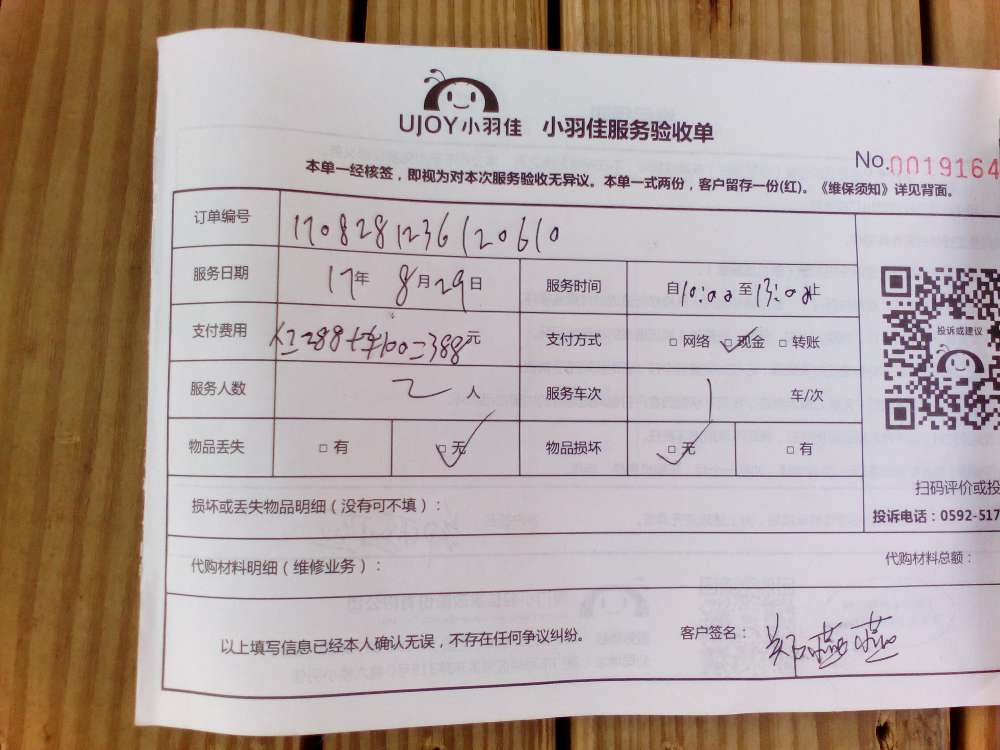 UJOY小羽佳 小羽佳服务验收单
No.0019164
本单一经核签，即视为对本次服务验收无异议。本单一式两份，客户留存一份(红)。《维保须知》详见背面。
订单编号 170828123612061 0
服务日期 17年 8月29日 服务时间 自10:00至13:00止
支付费用 288+ 100=388元 支付方式 □ 网络 □ 现金 □ 转账
服务人数 2 人 服务车次 1 车/次
物品丢失 □ 有 □ 无 物品损坏 □ 无 □ 有
投诉或建议
损坏或丢失物品明细（没有可不填）：
扫码评价或投
投诉电话：0592-517
代购材料明细（维修业务）：
代购材料总额：
以上填写信息已经本人确认无误，不存在任何争议纠纷。 客户签名：